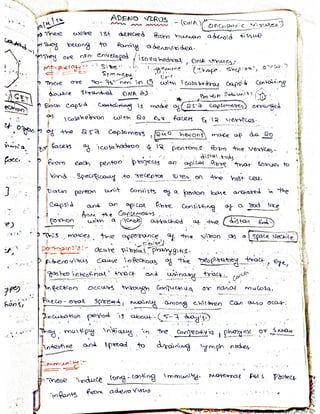 ADENO VIRUS - (DNA) (Oncogenic viruses)
These were 1st detected from human adenoid tissue
They belong to family adenoviridea.
They are non enveloped / icosahedral, DNA viruses.
Morphology: Size: Symmetry Genome (Shape
There are 70-75 nm in with icosahedral capsid containing
double stranded DNA
Each capsid containing is made of 252 capsomeres arranged
as icosahedron with 20 facets & 12 vertices.
of the 252 capsomeres, 240 hexons make up do 20
facets of icosahedron & 12 pentons form the vertices.
From each penton projects an apical fibre that serves to
bind specifically to receptor sites on the host cell.
Each penton unit consists of a penton base anchored in the
capsid and an apical fibre consisting of a rod like
portion with a knob attached at the distal end
from the Capsomeres
This makes the appearance of the virion as a space vechile
pathogenesis: acute febrile pharyngitis.
Adenovirus cause infections of the respiratory tract, eye,
gastrointestinal tract and urinary tract.
Infection occurs through conjuctiva or nasal mucosa.
Faeco-oral spread, mainly among children can also occur.
Incubation period is about (5-7 days).
They multiply initially in the conjectiva, pharynx or small
intestine and spread to draining lymph nodes.
Immunity:
These induce long-lasting immunity. Maternal Abs protect
infants from adenovirus